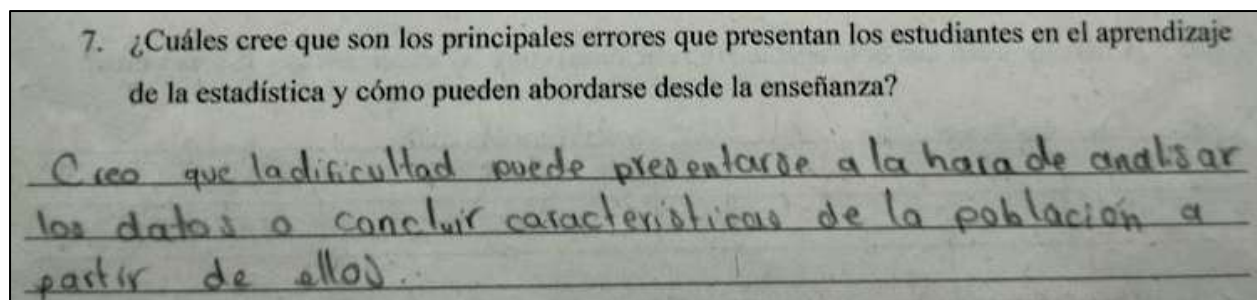 7. ¿Cuáles cree que son los principales errores que presentan los estudiantes en el aprendizaje
de la estadística y cómo pueden abordarse desde la enseñanza?
Creo que la dificultad puede presentarse a la hora de analisar
los datos o concluir caracteristicas de la población a
partir de ellos.